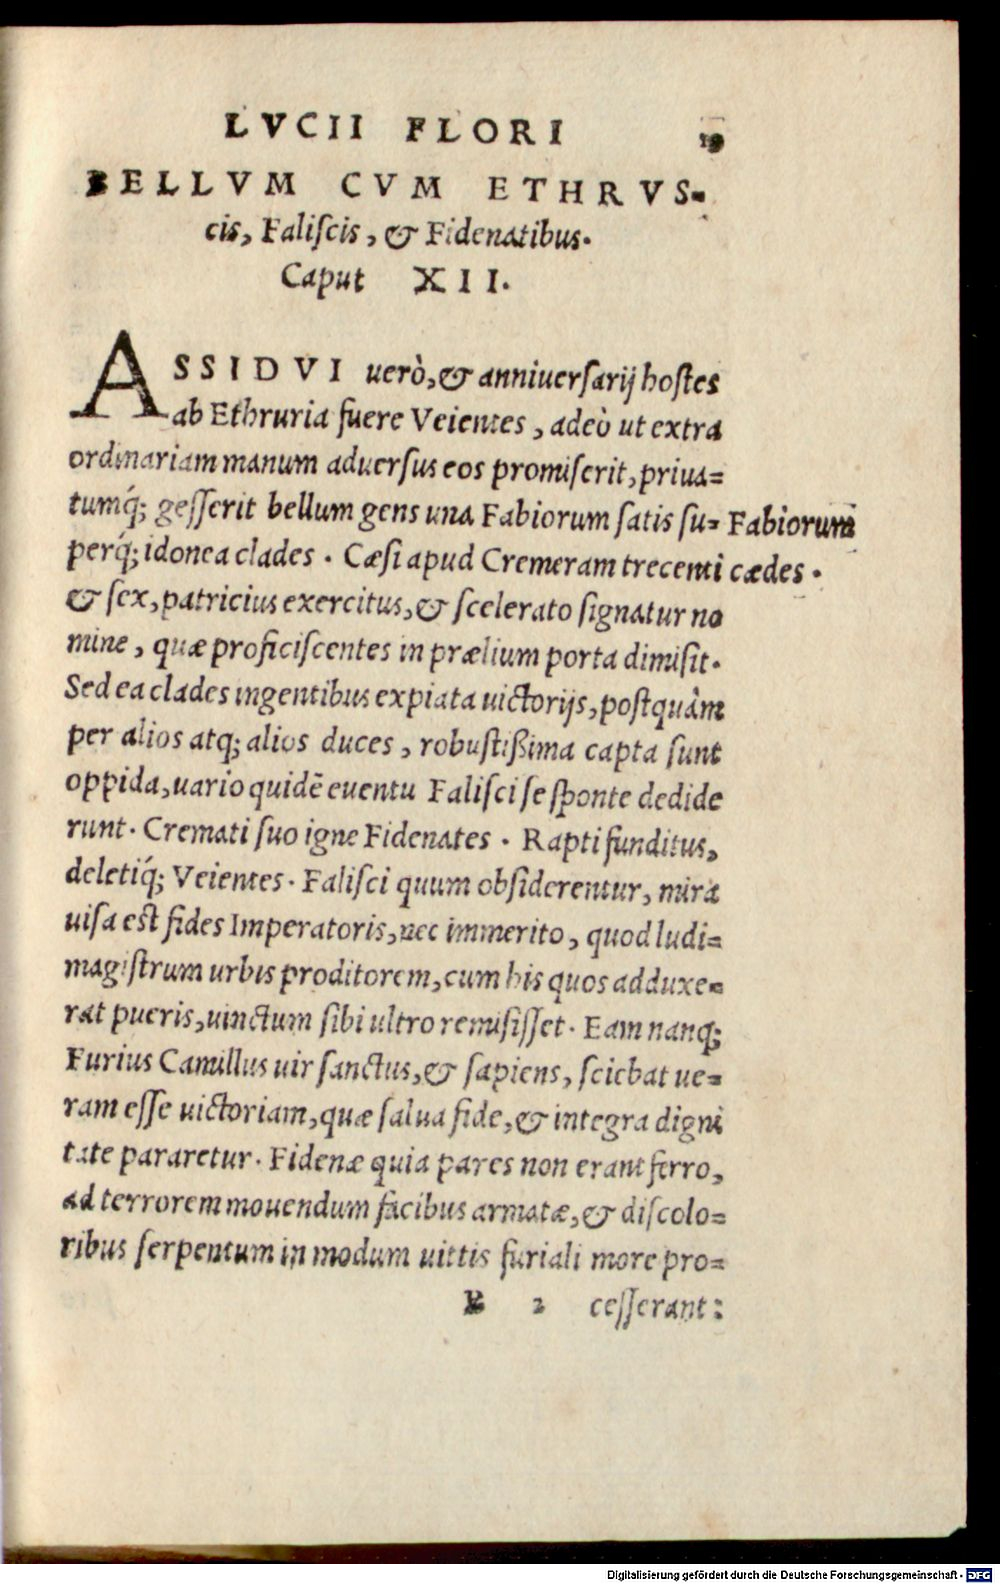 LVCII FLORI 19
BELLVM CVM ETHRVS-
cis, Faliscis, & Fidenatibus.
Caput XII.
ASSIDVI uerò, & anniuersarij hostes
ab Ethruria fuere Veientes, adeò ut extra
ordinariam manum aduersus eos promiserit, priua=
tumq́; gesserit bellum gens una Fabiorum satis su=
perq́; idonea clades. Cæsi apud Cremeram trecenti
& sex, patricius exercitus, & scelerato signatur no
mine, quæ proficiscentes in prælium porta dimisit.
Sed ea clades ingentibus expiata uictorijs, postquàm
per alios atq; alios duces, robustißima capta sunt
oppida, uario quidē euentu Falisci se sponte dedide
runt. Cremati suo igne Fidenates. Rapti funditus,
deletiq́; Veientes. Falisci quum obsiderentur, mira
uisa est fides Imperatoris, nec immerito, quod ludi=
magistrum urbis proditorem, cum his quos adduxe=
rat pueris, uinctum sibi ultro remisisset. Eam nanq;
Furius Camillus uir sanctus, & sapiens, sciebat ue=
ram esse uictoriam, quæ salua fide, & integra digni
tate pararetur. Fidenæ quia pares non erant ferro,
ad terrorem mouendum facibus armatæ, & discolo=
ribus serpentum in modum uittis furiali more pro=
B 2 cesserant:
Fabiorum
cædes.
Digitalisierung gefördert durch die Deutsche Forschungsgemeinschaft - DFG